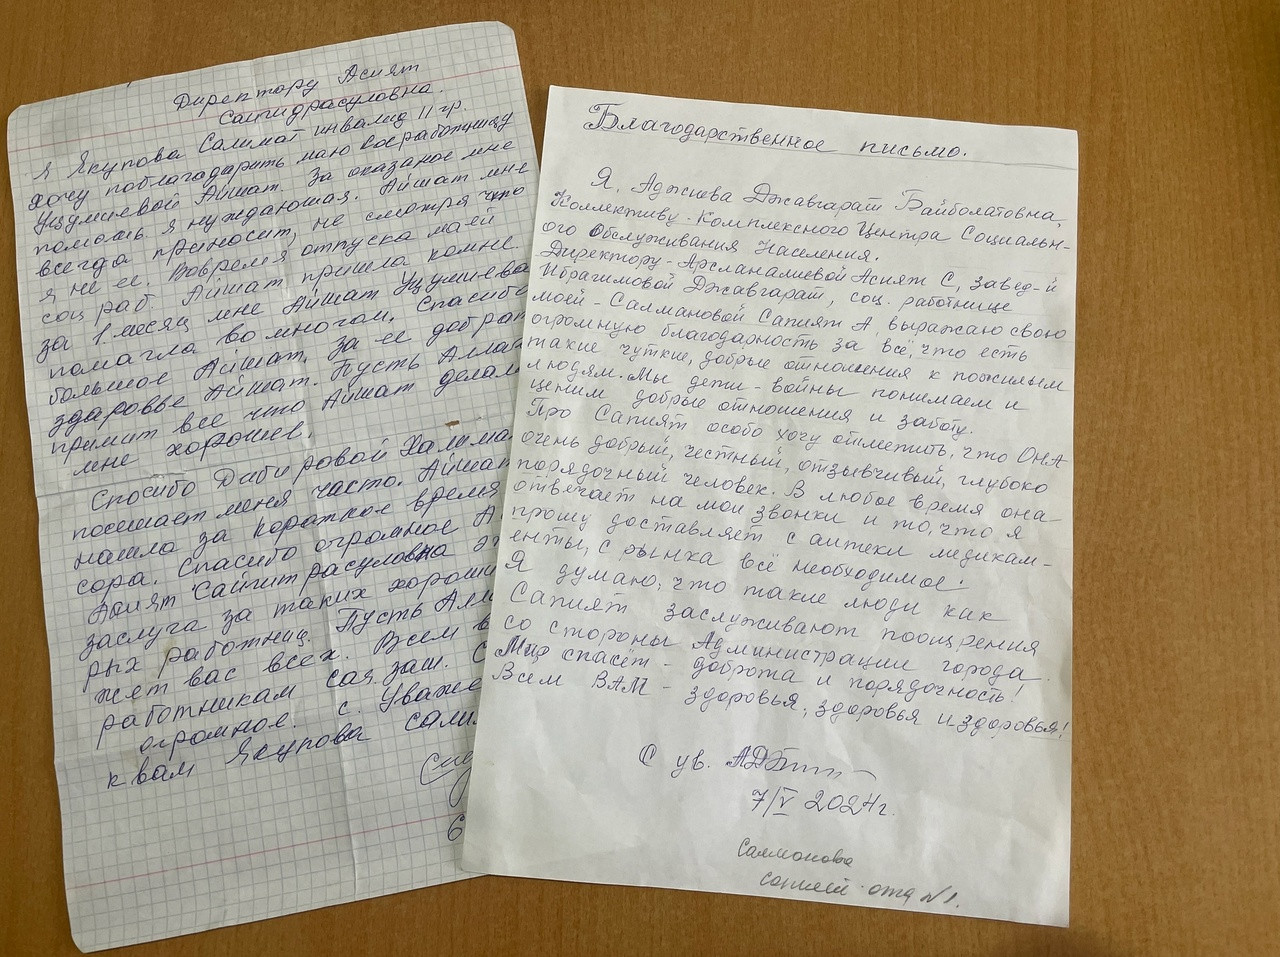 Директору Асият
Сайидрасуловна.
Я Якупова Салимат инвалид II гр.
хочу поблагодарить маю соцработницу
Уцумиевой Айшат. За оказаное мне
помошь я нуждающая. Айшат мне
всегда приносит, не смотря что
я не ее. Вовремя отпуска маей
соц раб Айшат пришла комне
за 1 месяц мне Айшат Уцумиева
помагла во многом. Спасибо
большое Айшат, за ее доброт
здаровье Айшат. Пусть Аллах
примит все что Айшат делала
мне хорошев.
Спосибо Дабировой Халима
посешает меня часто. Айшат
нашла за короткое время
сора. Спасибо огромное А
Асият Сайпитрасуловна эт
заслуга за таких хороши
рых работниц. Пусть Алла
жет вас всех. Всем
работникам соц заш. С
огромное. с. Уваже
к вам Якупова сали
6
Благодарственное письмо.
Я, Аджиева Джавгарат Байболатовна
Коллективу-Комплексного Центра Социальн-
ого Обслуживания Населения.
Директору-Арсланалиевой Асият С, Завед-й
Ибрагимовой Джавгарат, соц. работнице
моей-Салмановой Сапият А, выражаю свою
огромную благодарность за всё, что есть
такие чуткие, добрые отношения к пожилым
людям. Мы дети-войны понимаем и
ценим добрые отношения и заботу.
Про Сапият особо хочу отметить, что ОНА
очень добрый, честный, отзывчивый, глубоко
порядочный человек. В любое время она-
отвечает на мои звонки и то, что я
прошу доставляет с аптеки медикам-
енты, с рынка всё необходимое.
Я думаю, что такие люди как
Сапият заслуживают поощрения
со стороны Администрации города.
Мир спасёт-доброта и порядочность!
Всем ВАМ-здоровья, здоровья и здоровья!
С ув.
7/V 2024г.
Салманова
сапият отд №1.